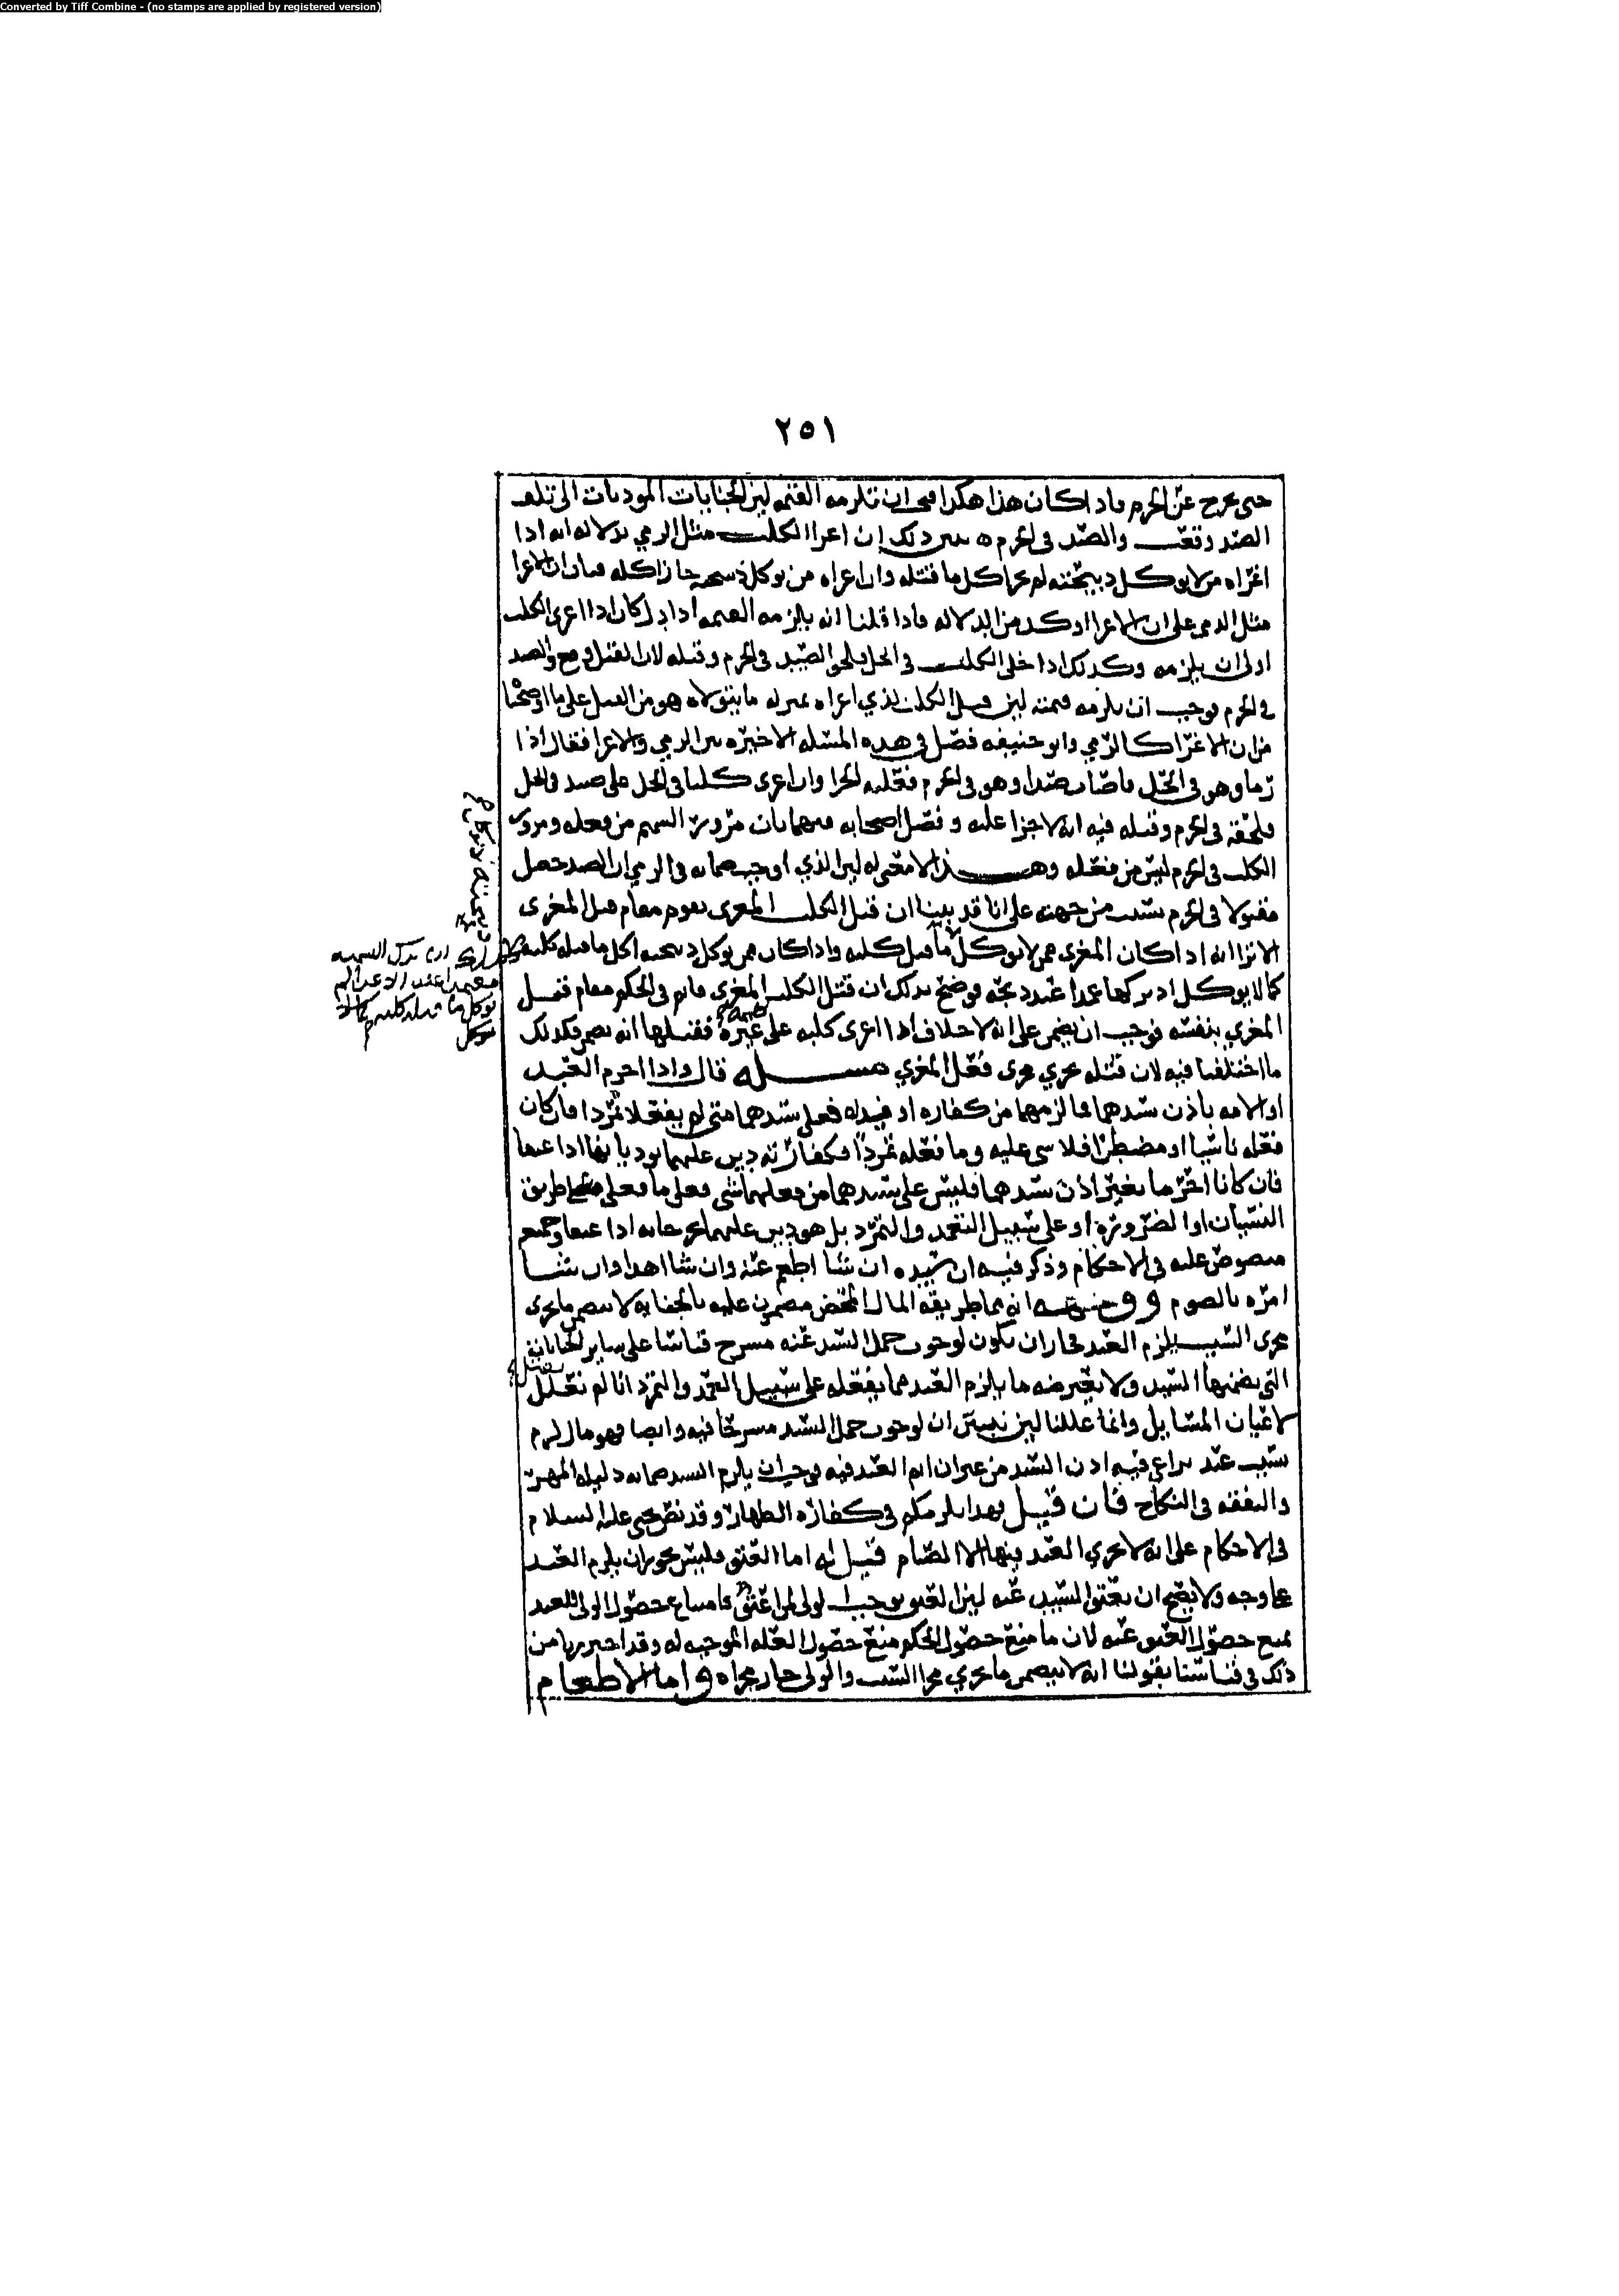 Converted by Tiff Combine - (no stamps are applied by registered version)
٢٥١
حتى يخرج عن الحرم فاذا كان هذا هكذا فيجب ان تلزمه القيمه لين الجنايات الموديات الى تلف
الصيد وقعت والصيد في الحرم يبين ذلك ان اغرا الكلب مثل الرمي بدلاله انه اذا
اغراه من لا يوكل ذبيحته لم يجز اكل ما قتله وان اغراه من يوكل ذبيحته جاز اكله فبان ان الاغرا
مثل الرمي على ان الاغرا اوكد من الدلاله فاذا قلنا انه يلزمه القيمه اذا دل كان اذا اغرى الكلب
اولى ان يلزمه وكذلك اذا خلى الكلب في الحل ولحق الصيد في الحرم وقتله لان القتل وقع والصيد
في الحرم فوجب ان يلزمه قيمته لين قتل الكلب الذي اغراه بمنزله ما يتولاه هو من القتل على ما اوضحنا
من ان الاغرا كالرمي وابو حنيفه فصل في هذه المسله الاخيره بين الرمي والاغرا فقال اذا
رما وهو في الحل فاصاب صيدا وهو في الحرم فعليه الجزا وان اغرى كلبا في الحل على صيد في الحل
فلحقه في الحرم وقتله فيه انه لا جزا عليه وفصل اصحابه بينهما بان مرور السهم من فعله ومرور
الكلب في الحرم ليس من فعله وهذا لا معنى له لين الذي اوجب ضمانه في الرمي ان الصيد حصل
مقتولا في الحرم بسبب من جهته على انا قد بينا ان قتل الكلب المغرى يقوم مقام قتل المغري
الا ترا انه اذا كان المغري ممن لا يوكل ما قتل كلبه واذا كان ممن يوكل ذبيحته اكل ما قتله كلبه
كما لا يوكل اذ تركها عمدا عند ذبحه فوضح بذلك ان قتل الكلب المغرى قايم في الحكم مقام قتل
المغري بنفسه فوجب ان يضمن على انه لا خلاف اذا اغرى كلبه على غيره فقتلها انه يضمن فكذلك
ما اختلفنا فيه لان قتله يجري مجرى فعل المغري مسله قال واذا احرم العبد
او الامه باذن سيدهما فما لزمهما من كفاره او فديه فعلى سيدهما متى لم يفعلا تمردا فان كان
فعله ناسيا او مضطرا فلا شي عليه وما فعله تمردا فكفارته دين عليهما يوديانها اذا عتقا
فان كانا احرما بغير اذن سيدهما فليس على سيدهما من فعلهما شي فعلى ما فعلى على طريق
النسيان او الضروره او على سبيل التعمد والتمرد بل هو دين عليهما يخرجانه اذا عتقا وجميعه
منصوص عليه في الاحكام وذكر فيه ان سيده ان شا اطعم عنه وان شا اهدا وان شا
امره بالصوم ووجهه انه مما طريقه المال المحض مضمون عليه بالجنايه لا يتضمن ما يجري
مجرى السبب يلزم العبد فجاز ان يكون لوجوب حمل السيد عنه مسرح قياسا على ساير الجنايات
التي يضمنها السيد ولا يعترضه ما يلزم العبد مما يفعله على سبيل التعمد والتمرد انا لم نعلل
لاعيان المسايل وانما عللنا لين نبين ان لوجوب حمل السيد مسرحا فيه وايضا فهو مال لزم
بسبب عقد يراعى فيه اذن السيد من غير ان اثم العبد فيه فوجب ان يلزم السيد ضمانه دليله المهر
والنفقه في النكاح فان قيل بهذا يلزمكم في كفاره الظهار وقد نص يحيى عليه السلام
في الاحكام على انه لا يجزي العبد فيها الا الصيام قيل له اما العتق فليس يجوز ان يلزم العبد
بحال وجه ولا يصح ان يعتق السيد عنه لين العتق يوجب الولى لمن اعتق فامتناع حصول الولى للعبد
يمنع حصول العتق عنه لان ما منع حصول الحكم منع حصول العله الموجبه له وقد احترزنا من
ذلك في قياسنا بقولنا انه لا يتضمن ما يجري مجرا السبب والولى جار مجراه واما الاطعام